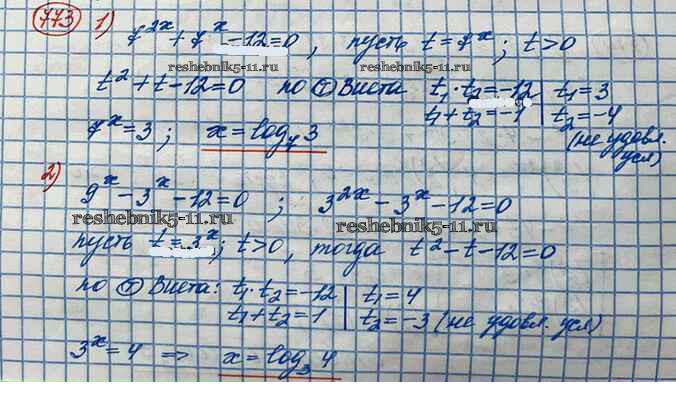 773 1) 7^{2x} + 7^x - 12 = 0, пусть t = 7^x; t > 0
reshebnik5-11.ru reshebnik5-11.ru
t² + t - 12 = 0 по Ⓣ Виета t₁ · t₂ = -12 | t₁ = 3
t₁ + t₂ = -1 | t₂ = -4
(не удовл. усл)
7^x = 3; x = log₇ 3
2) 9^x - 3^x - 12 = 0; 3^{2x} - 3^x - 12 = 0
reshebnik5-11.ru reshebnik5-11.ru
пусть t = 3^x; t > 0, тогда t² - t - 12 = 0
по Ⓣ Виета: t₁ · t₂ = -12 | t₁ = 4
t₁ + t₂ = 1 | t₂ = -3 (не удовл. усл)
3^x = 4 => x = log₃ 4